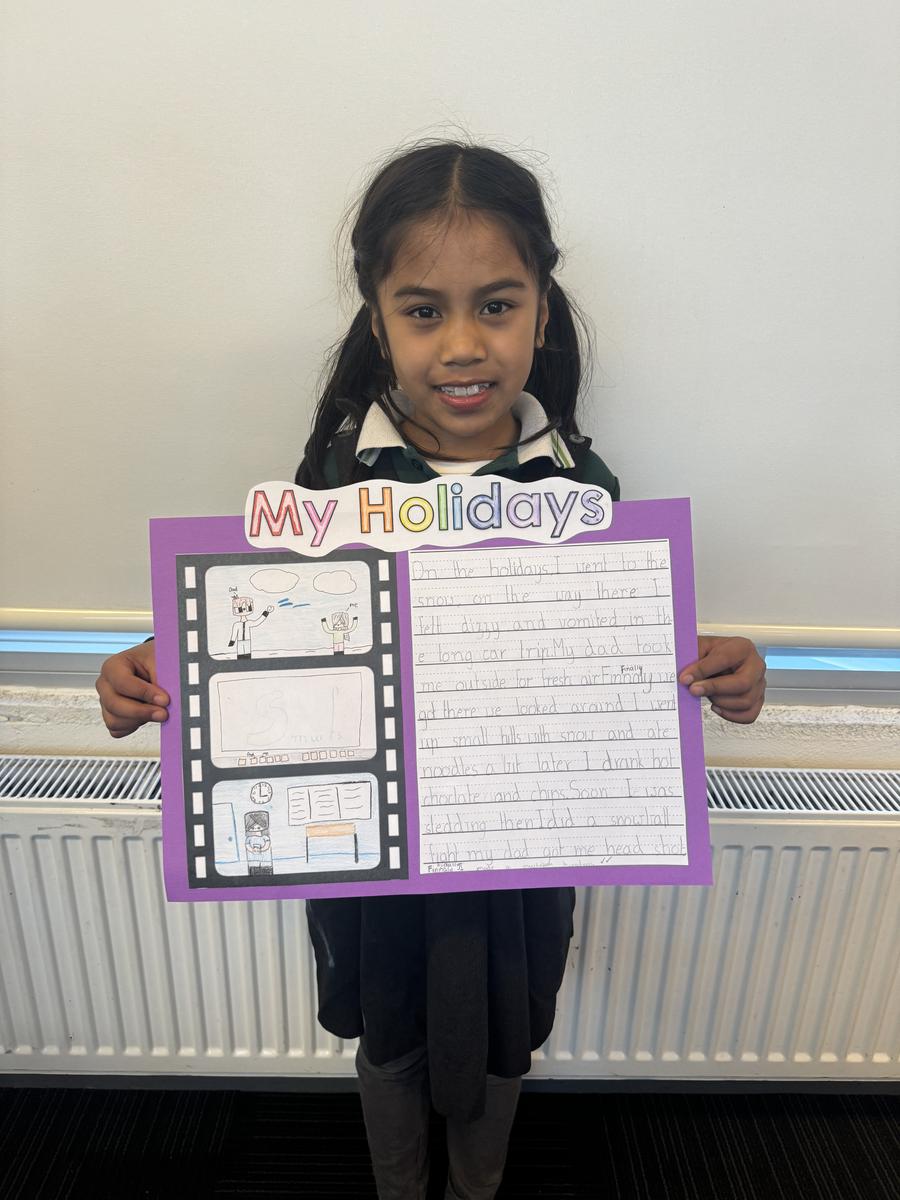 My Holidays
On the holidays I went to the
snow, on the way there I
felt dizzy and vomited in th
e long car trip.My dad took
Finally
me outside for fresh air Finnaly we
got there we looked around I went
up small hills with snow and ate
noodles a bit later I drank hot
choclate and chips.Soon I was
sledding then I did a snowball
fight my dad got me head shot
Finnaly
Dad
me